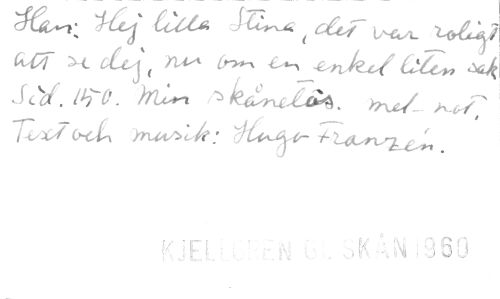 Han: Hej lilla Stina, det var roligt
att se dej, nu om en enkel liten sak
Sid. 150. Min skånetös. mel-not.
Text och musik: Hugo Franzén.
KJELLGREN GL SKÅN 1960